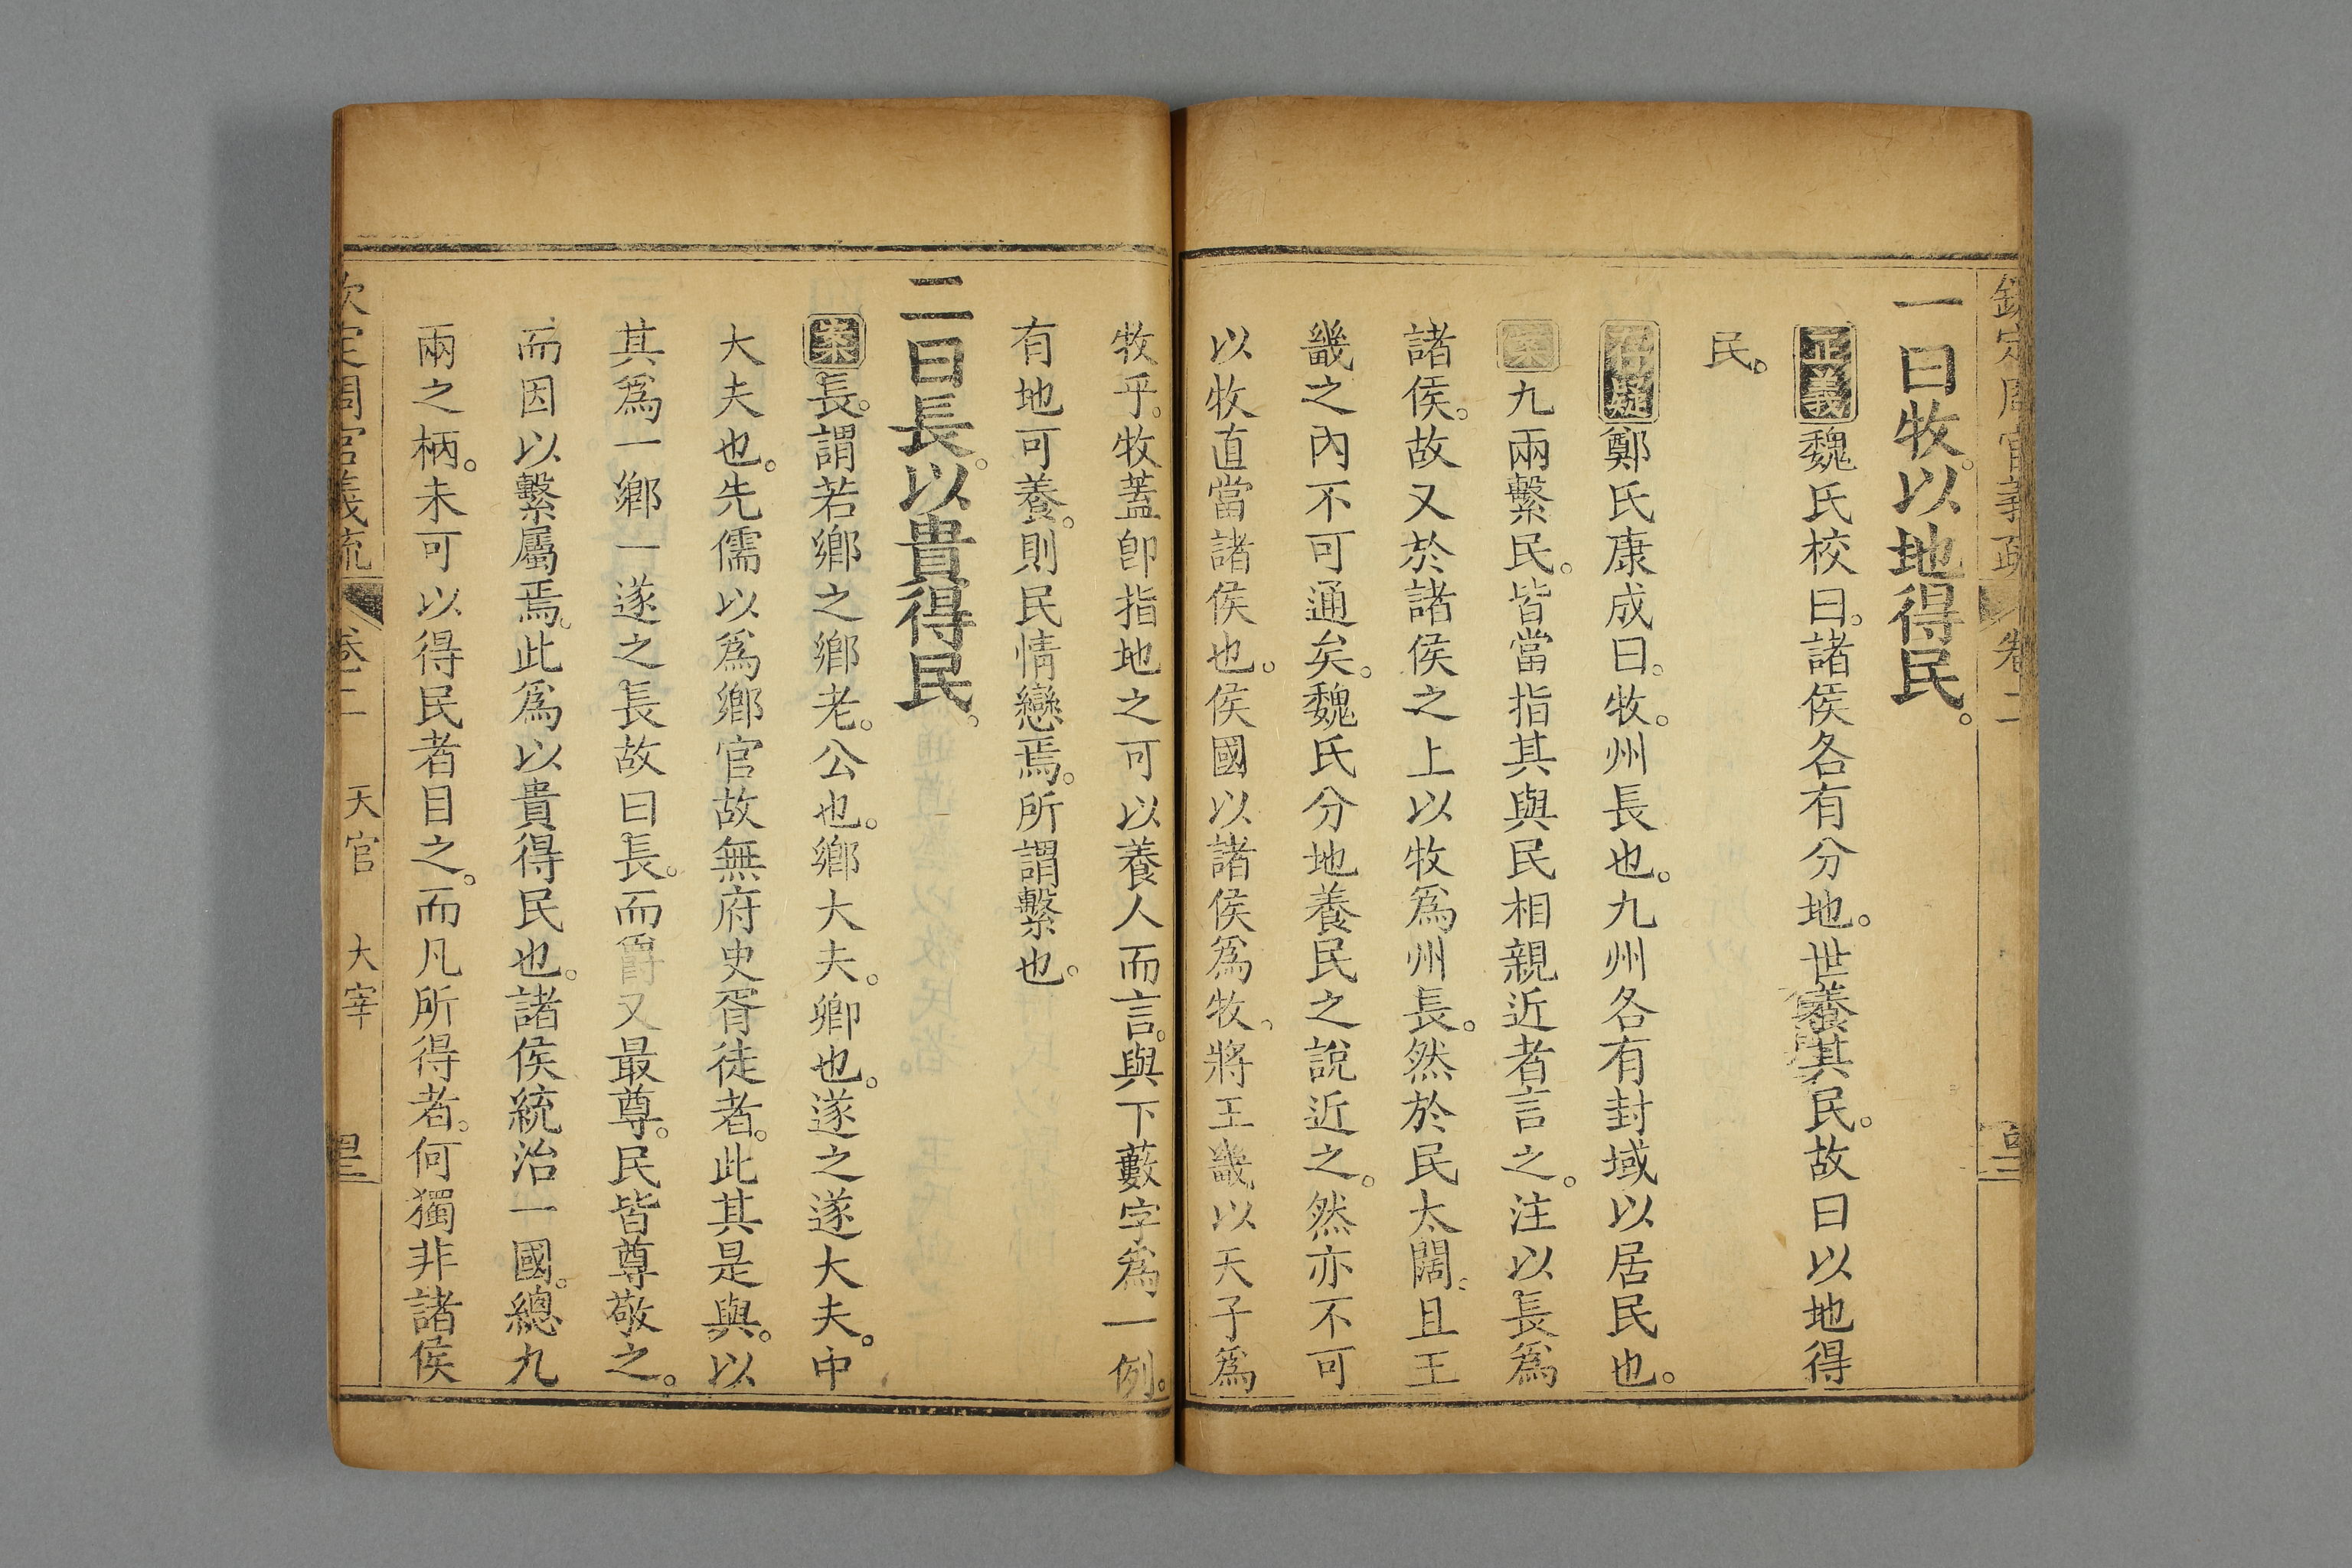 欽定周官義疏 卷二
一曰牧。以地得民。
正義魏氏校曰。諸侯各有分地。世養其民。故曰以地得
民。
存疑鄭氏康成曰。牧。州長也。九州各有封域以居民也。
案九兩繫民。皆當指其與民相親近者言之。注以長爲
諸侯。故又於諸侯之上以牧爲州長。然於民太闊。且王
畿之內不可通矣。魏氏分地養民之說近之。然亦不可
以牧直當諸侯也。侯國以諸侯爲牧。將王畿以天子爲
牧乎。牧蓋卽指地之可以養人而言。與下藪字爲一例。
有地可養。則民情戀焉。所謂繫也。
二曰長。以貴得民。
案長。謂若鄉之鄉老。公也。鄉大夫。卿也。遂之遂大夫。中
大夫也。先儒以爲鄉官故無府史胥徒者。此其是與。以
其爲一鄉一遂之長故曰長。而爵又最尊。民皆尊敬之。
而因以繫屬焉。此爲以貴得民也。諸侯統治一國。總九
兩之柄。未可以得民者目之。而凡所得者。何獨非諸侯
欽定周官義疏 卷二 天官 大宰